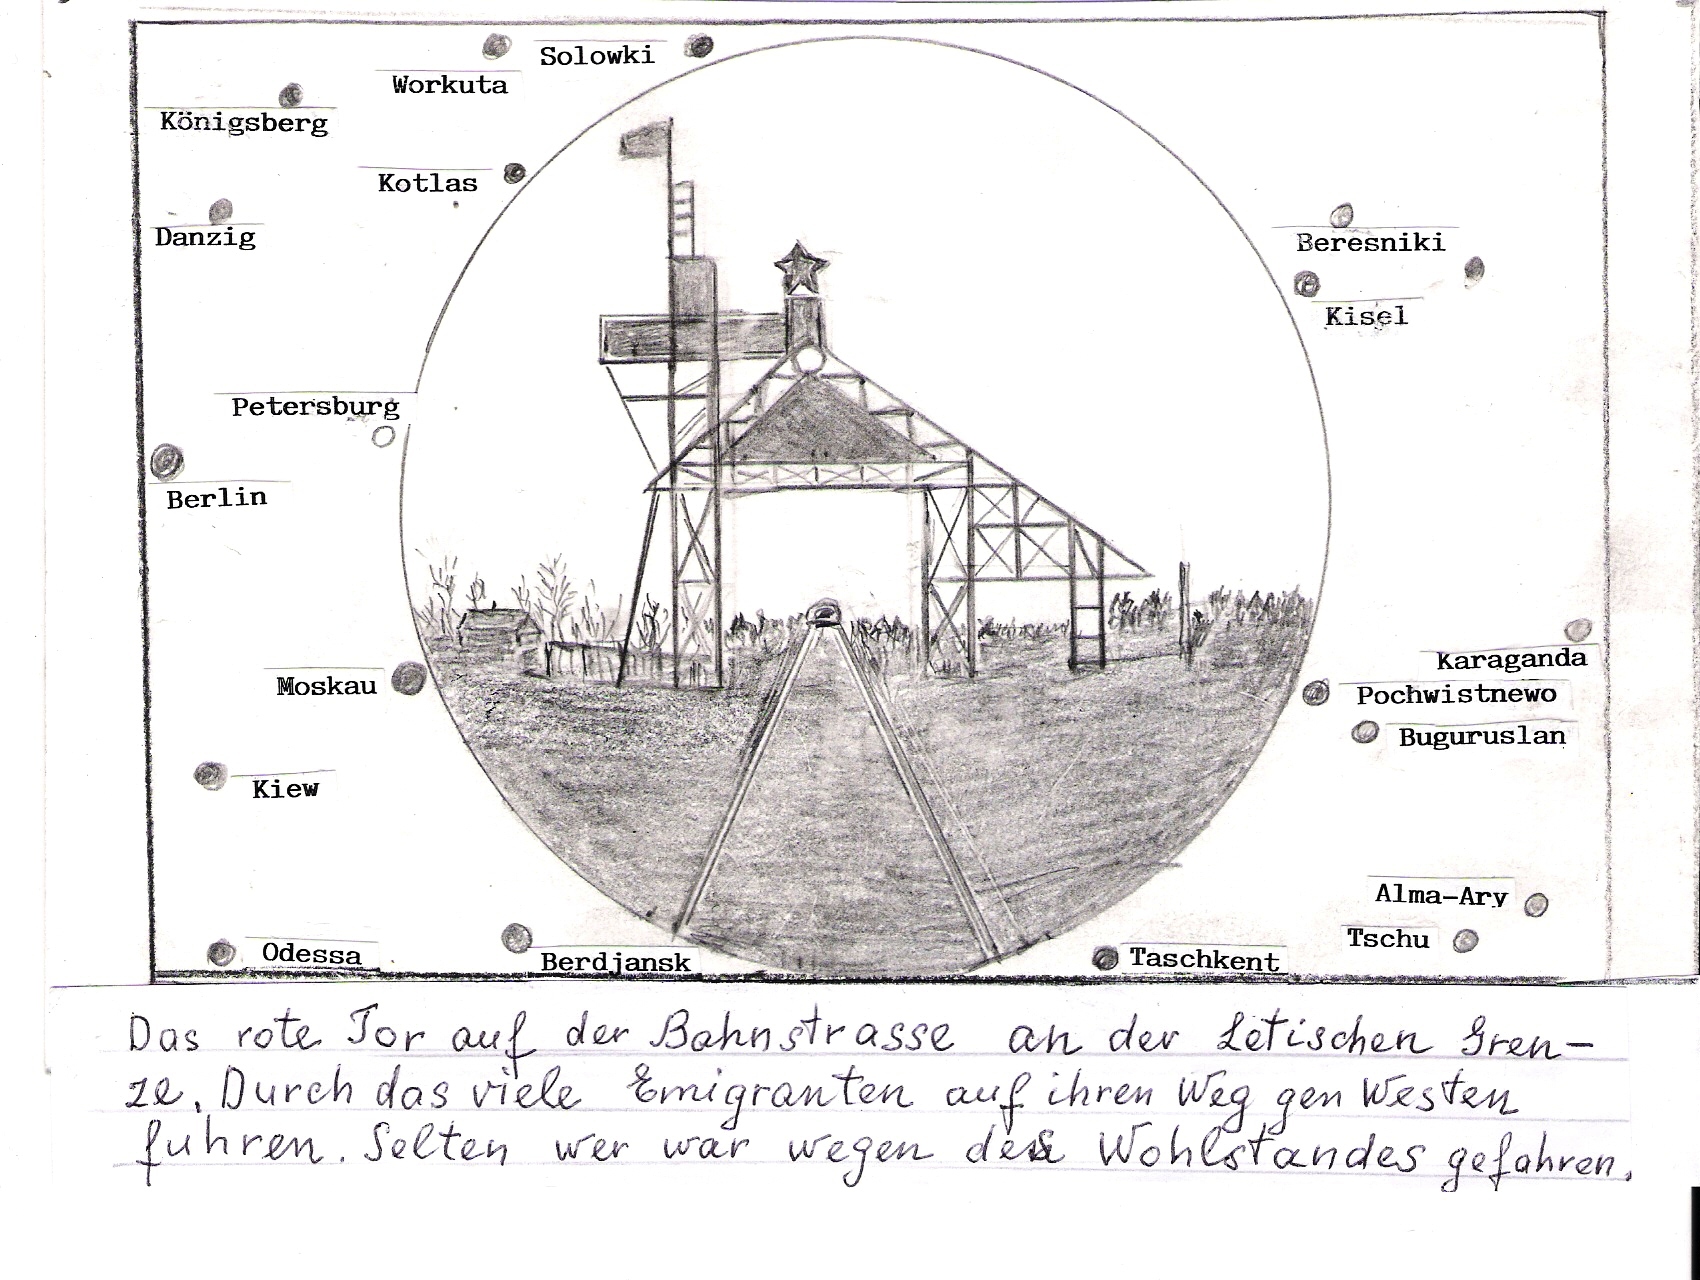 Solowki
Workuta
Königsberg
Kotlas
Danzig
Beresniki
Kisel
Petersburg
Berlin
Karaganda
Moskau
Pochwistnewo
Buguruslan
Kiew
Alma-Ary
Tschu
Odessa
Berdjansk
Taschkent
Das rote Tor auf der Bahnstrasse an der Letischen Gren-
ze. Durch das viele Emigranten auf ihren Weg gen Westen
fuhren. Selten wer war wegen des Wohlstandes gefahren.